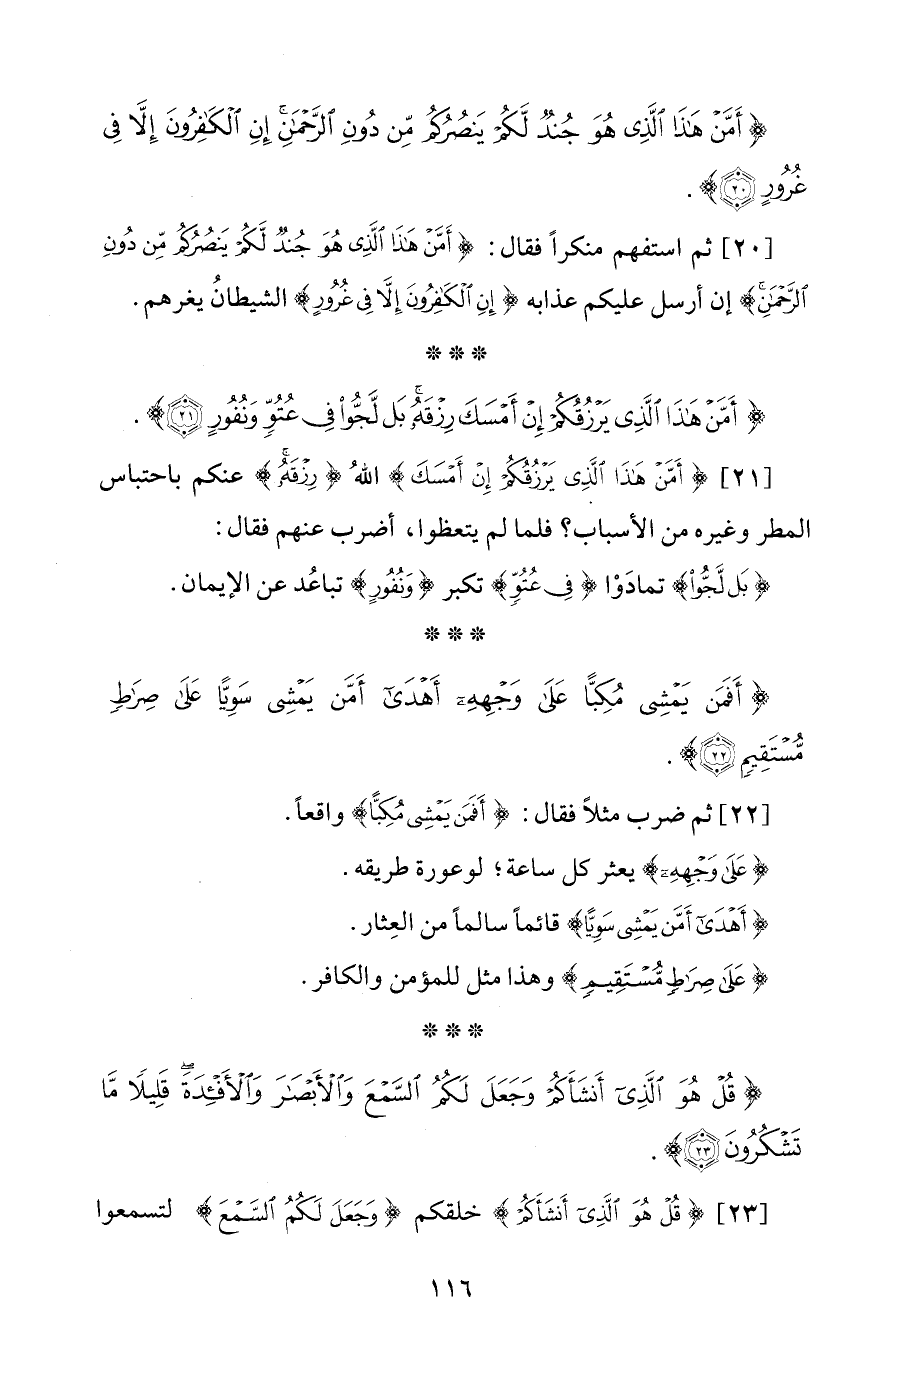 ﴿ أَمَّنْ هَٰذَا ٱلَّذِى هُوَ جُندٌ لَّكُمْ يَنصُرُكُم مِّن دُونِ ٱلرَّحْمَٰنِ ۚ إِنِ ٱلْكَٰفِرُونَ إِلَّا فِى
غُرُورٍ ٢٠ ﴾ .
[٢٠] ثم استفهم منكراً فقال: ﴿ أَمَّنْ هَٰذَا ٱلَّذِى هُوَ جُندٌ لَّكُمْ يَنصُرُكُم مِّن دُونِ
ٱلرَّحْمَٰنِ ۚ ﴾ إن أرسل عليكم عذابه ﴿ إِنِ ٱلْكَٰفِرُونَ إِلَّا فِى غُرُورٍ ﴾ الشيطانُ يغرهم .
* * *
﴿ أَمَّنْ هَٰذَا ٱلَّذِى يَرْزُقُكُمْ إِنْ أَمْسَكَ رِزْقَهُۥ ۚ بَل لَّجُّوا۟ فِى عُتُوٍّ وَنُفُورٍ ٢١ ﴾ .
[٢١] ﴿ أَمَّنْ هَٰذَا ٱلَّذِى يَرْزُقُكُمْ إِنْ أَمْسَكَ ﴾ اللهُ ﴿ رِزْقَهُۥ ۚ ﴾ عنكم باحتباس
المطر وغيره من الأسباب؟ فلما لم يتعظوا، أضرب عنهم فقال:
﴿ بَل لَّجُّوا۟ ﴾ تمادَوْا ﴿ فِى عُتُوٍّ ﴾ تكبر ﴿ وَنُفُورٍ ﴾ تباعُد عن الإيمان .
* * *
﴿ أَفَمَن يَمْشِى مُكِبًّا عَلَىٰ وَجْهِهِۦٓ أَهْدَىٰٓ أَمَّن يَمْشِى سَوِيًّا عَلَىٰ صِرَٰطٍ
مُّسْتَقِيمٍ ٢٢ ﴾ .
[٢٢] ثم ضرب مثلاً فقال: ﴿ أَفَمَن يَمْشِى مُكِبًّا ﴾ واقعاً .
﴿ عَلَىٰ وَجْهِهِۦٓ ﴾ يعثر كل ساعة؛ لوعورة طريقه .
﴿ أَهْدَىٰٓ أَمَّن يَمْشِى سَوِيًّا ﴾ قائماً سالماً من العِثار .
﴿ عَلَىٰ صِرَٰطٍ مُّسْتَقِيمٍ ﴾ وهذا مثل للمؤمن والكافر .
* * *
﴿ قُلْ هُوَ ٱلَّذِىٓ أَنشَأَكُمْ وَجَعَلَ لَكُمُ ٱلسَّمْعَ وَٱلْأَبْصَٰرَ وَٱلْأَفْـِٔدَةَ ۖ قَلِيلًا مَّا
تَشْكُرُونَ ٢٣ ﴾ .
[٢٣] ﴿ قُلْ هُوَ ٱلَّذِىٓ أَنشَأَكُمْ ﴾ خلقكم ﴿ وَجَعَلَ لَكُمُ ٱلسَّمْعَ ﴾ لتسمعوا
١١٦